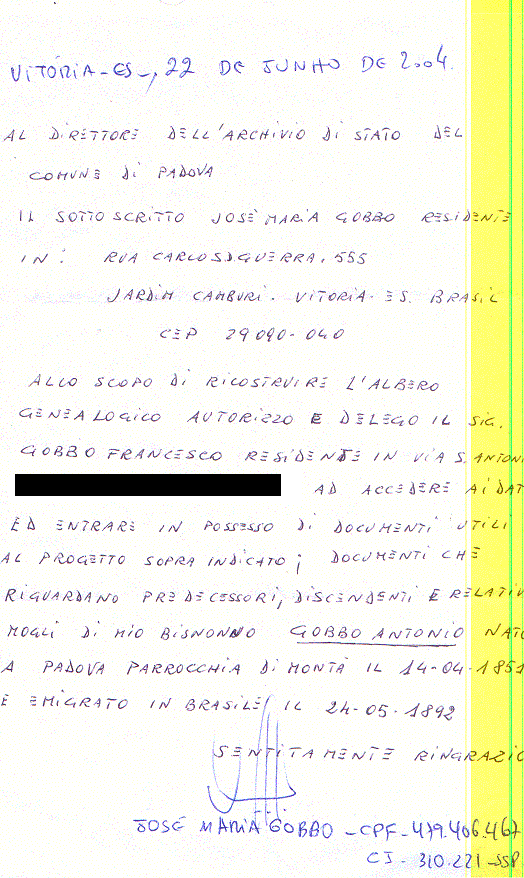 VITÓRIA-ES-, 22 DE JUNHO DE 2004.
AL DIRETTORE DELL'ARCHIVIO DI STATO DEL
COMUNE DI PADOVA
IL SOTTOSCRITTO JOSÈ MARIA GOBBO RESIDENTE
IN: RUA CARLOS D GUERRA, 555
JARDIM CAMBURI. VITORIA-ES. BRASIL
CEP 29090-040
ALLO SCOPO DI RICOSTRUIRE L'ALBERO
GENEALOGICO AUTORIZZO E DELEGO IL SIG.
GOBBO FRANCESCO RESIDENTE IN VIA S. ANTONI
AD ACCEDERE AI DAT
ED ENTRARE IN POSSESSO DI DOCUMENTI UTILI
AL PROGETTO SOPRA INDICATO; DOCUMENTI CHE
RIGUARDANO PREDECESSORI, DISCENDENTI E RELATIV
MOGLI DI MIO BISNONNO GOBBO ANTONIO NATO
A PADOVA PARROCCHIA DI MONTÀ IL 14-04-1851
E EMIGRATO IN BRASILE IL 24-05-1892
SENTITAMENTE RINGRAZIO
JOSÉ MARIA GOBBO-CPF-479.406.467
CI-310.221-SSP